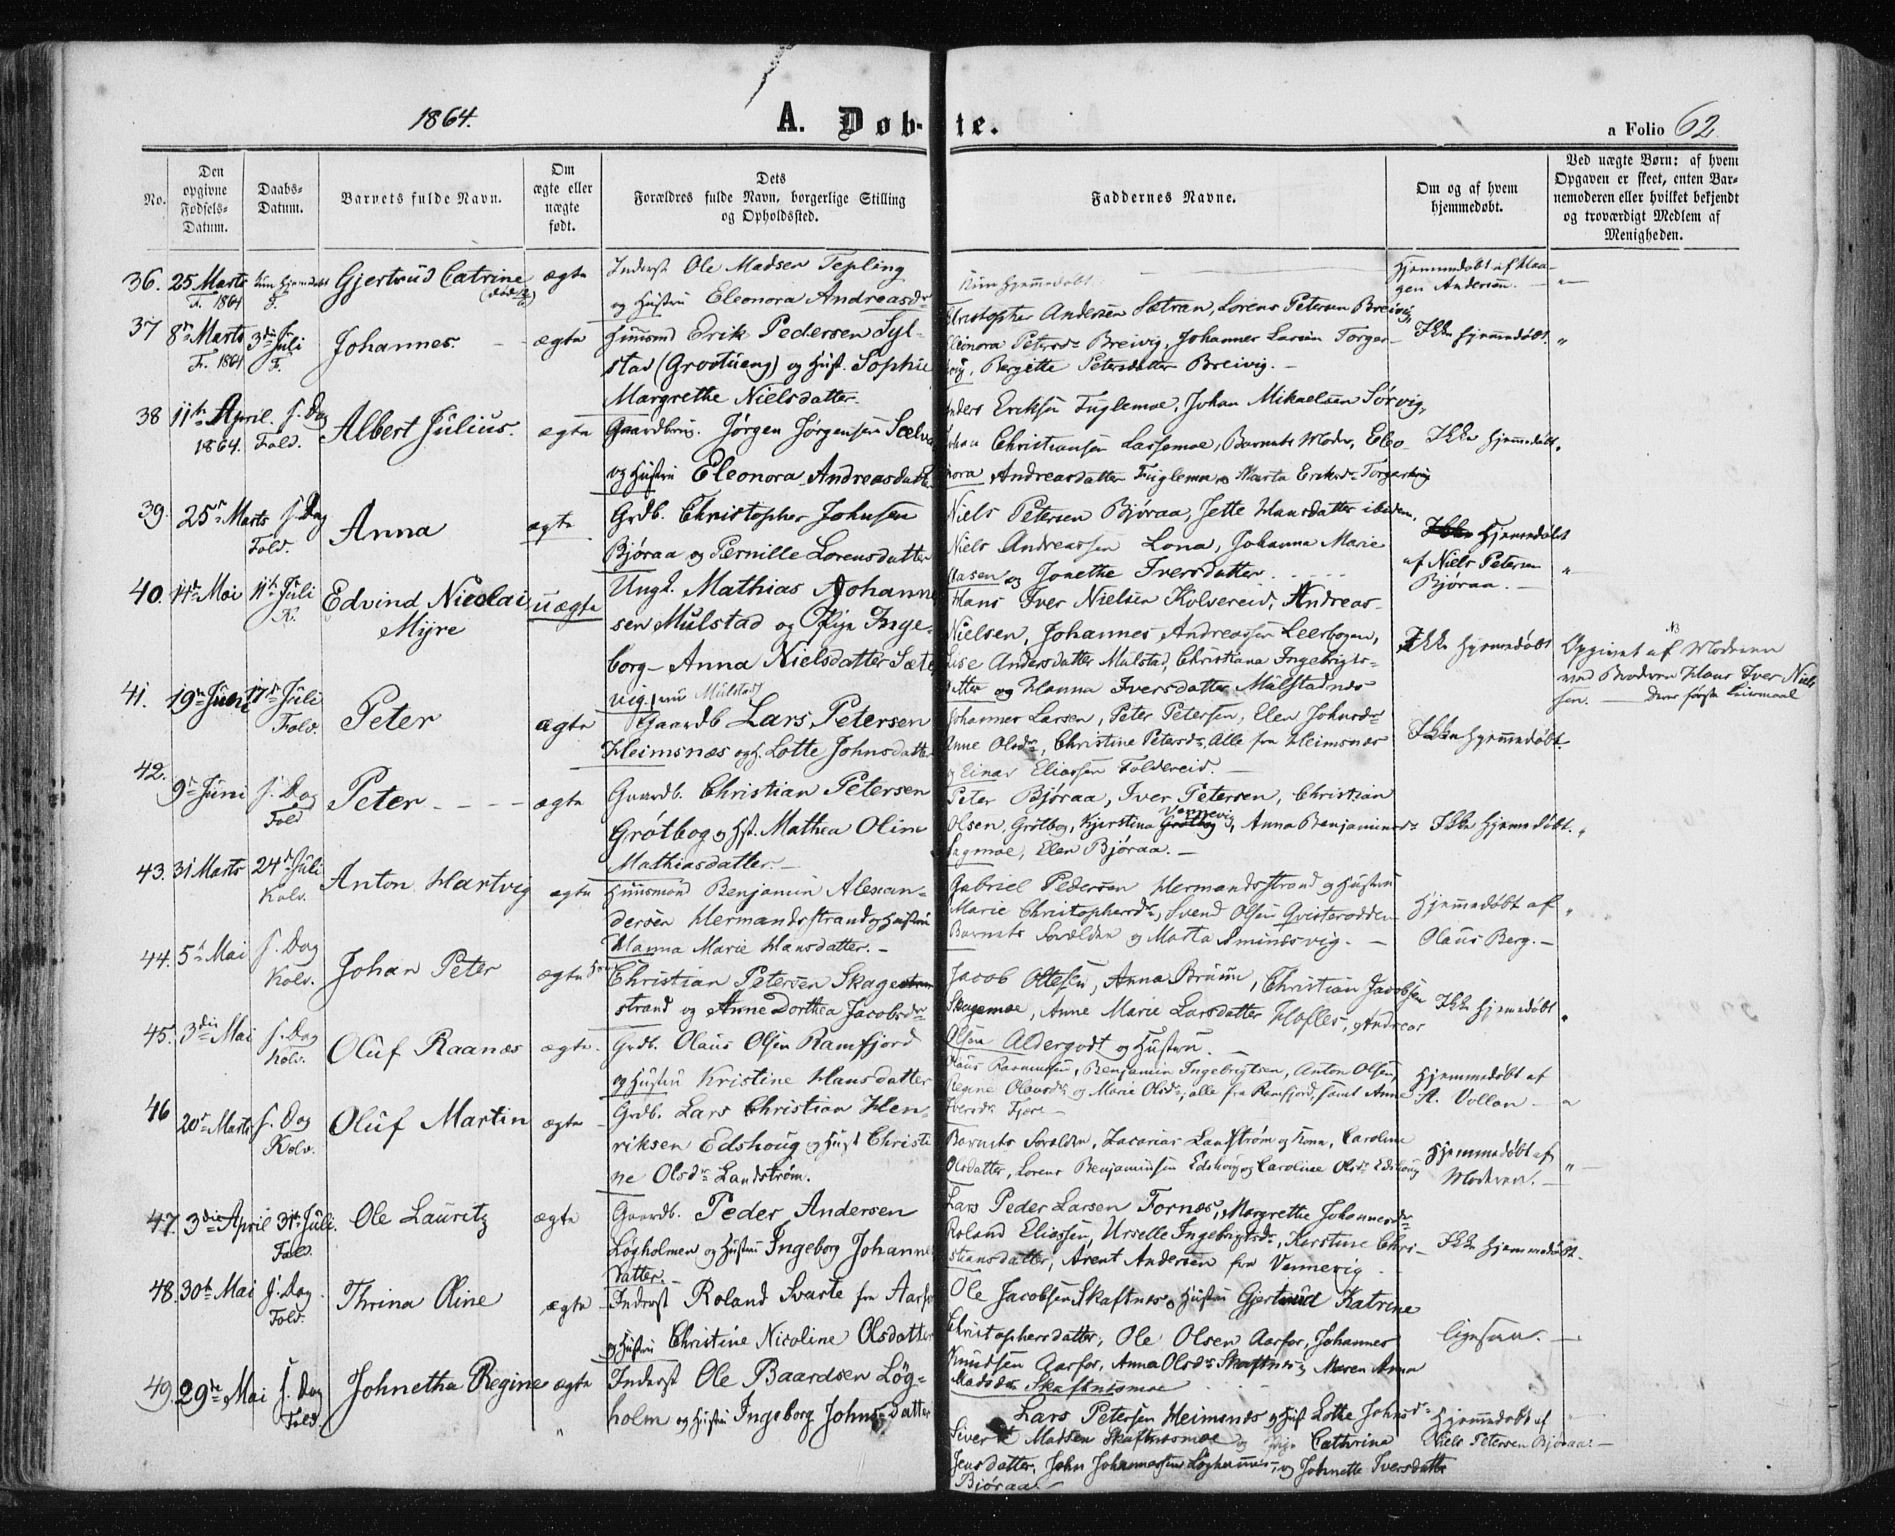 1864.
A. Døb-te.
a Folio 62
No.
Den opgivne Fødsels-Datum.
Daabs-Datum.
Barnets fulde Navn.
Om ægte eller uægte født.
Dets Forældres fulde Navn, borgerlige Stilling og Opholdssted.
Faddernes Navne.
Om og af hvem hjemmedøbt.
Ved uægte Børn: af hvem Opgaven er skeet, enten Barnemoderen eller hvilket bekjendt og troværdigt Medlem af Menigheden.
36. 25 Marts F. 1864
Gjertrud Catrine
ægte
Inderst Ole Madsen Tepling
og Hustru Eleonora Andreasdr
Kun hjemmedøbt
Hjemmedøbt af Haagen Andersen. —
37 8de Marts F. 1864
3die Juli F.
Johannes.
ægte
Huusmd Erik Pedersen Syl-
stad (Grootueng) og Hust. Sophie
Margrethe Nielsdatter.
Christopher Andersen Sætran, Lorens Petersen Breivig,
Eleonora Petersdr Breivig, Johannes Larsen Torger-
vig, Bergitte Petersdatter Breivig. —
Ikke hjemmedøbt.
38 11te April 1864.
s. Dag Fold.
Albert Julius.
ægte
Gaardbrug. Jørgen Jørgensen
og Hustru Eleonora Andreasdatter
Anders Eriksen Fuglemoe, Johan Mikaelsen Sørvig,
Johan Christiansen Lassemoe, Barnets Moder, Eleo-
nora Andreasdatter Fuglemoe, Marta Eriksdr Torgersvig
Ikke hjemmedøbt.
39. 25de Marts
s. Dag Fold.
Anna
ægte
Grdb. Christopher Johnsen
Bjøraa og Pernille Lorensdatter
Niels Petersen Bjøraa, Jette Hansdatter ibidem,
Niels Andreassen Lona, Johanna Marie
Clasen og Jonethe Iversdatter.
Ikke Hjemmedøbt
af Niels Petersen
Bjøraa. —
40. 14de Mai
11te Juli K.
Edvind Nicolai Myre
uægte
Ungk. Mathias Johanne-
sen Mulstad og Pige Inge-
borg Anna Nielsdatter Sæter-
vig, nu Mulstad
Hans Iver Nielsen Kolvereid, Andreas
Nielsen, Johannes Andreassen Leerbogen,
Lise Andersdatter Mulstad, Christiana Ingebrigts-
datter og Hanna Iversdatter Mulstadnes
Ikke hjemmedøbt
Opgivet af Moderen
ved Broderen Hans Iver Niel-
sen. — Deres første Leiermaal
41. 19de Juni
17de Juli Fold.
Peter
ægte
Gaardb Lars Petersen
Heimsnæs og H. Lotte Johnsdatter
Johannes Larsen, Peter Petersen, Elen Johnsdr
Anne Olsdr, Christine Petersdr, Alle fra Heimsnæs
og Einar Eliassen Foldereid. —
Ikke hjemmedøbt.
42. 9de Juni
s. Dag Fold
Peter
ægte
Gaardb. Christian Petersen
Grøtbog og Hst. Mathea Oline
Mathiasdatter. —
Peter Bjøraa, Iver Petersen, Christian
Olsen, Grøtbog, Kjerstina Grøtbog Vennevig, Anna Benjaminsdr
Sagmoe, Elen Bjøraa. —
Ikke hjemmedøbt.
43. 31 Marts
24de Juli Kolv.
Anton Hartvig
ægte
Huusmand Benjamin Alexan-
dersen Hermandsstrand og Hustru
Hanna Marie Hansdatter. —
Gabriel Pedersen Hermandsstrand og Hustru
Marie Christophersdr, Svend Olsen Qvisterodden
Barnets Forældre og Marta Sminæsvig. —
Hjemmedøbt af
Olaus Berg. —
44. 5te Mai
s. Dag Kolv.
Johan Peter
ægte
Christian Petersen Skage
strand og Anne Dorthea Jacobsdr
Jacob Ottesen, Anna Bruun, Christian Jacobsen
Skagemoe, Anne Marie Larsdatter Hofles, Andreas
Olsen Aldergodt og Hustru. —
Ikke hjemmedøbt
45. 3die Mai
s. Dag Kolv.
Oluf Raanæs
ægte
Grdb. Olaus Olsen Ramfjord
og Hustru Kristine Hansdatter
Olaus Rasmussen, Benjamin Ingebrigtsen, Anton Olsen,
Regine Olausdr og Marie Olsdr, alle fra Ramfjord, samt Anne
Iversdr Fjære —
Hjemmedøbt af
A. Vollan —
46 20de Marts
s. Dag Kolv.
Oluf Martin
ægte
Grdb. Lars Christian Hen-
riksen Edshoug og Hust Christi-
ne Olsdr Landstrøm.
Barnets Forældre, Zacarias Landstrøm og Kone, Caroline
Olsdatter, Lorens Benjaminsen Edshoug og Caroline Olsdr Edshoug
Hjemmedøbt af
Moderen. —
47. 3die April
31te Juli. Fold.
Ole Lauritz
ægte
Gaardb. Peder Andersen
Løgholmen og Hustru Ingeborg Johanne-
datter. —
Lars Peder Larsen Fornæs, Margrethe Johannesdr
Roland Eliassen, Urselle Ingebrigtsdr, Kerstine Chri-
stiansdatter, Arent Andersen fra Vennevig
Ikke hjemmedøbt.
48. 30te Mai
s. Dag. Fold.
Thrina Oline
ægte
Inderst Roland Svarte fra Aarfor
og Hustru Christine Nicoline Olsdatter
Ole Jacobsen Skaftnes, Hustru Gjertrud Katrine
Christophersdatter, Ole Olsen Aarfor, Johannes
Knudsen Aarfor, Anna Olsdr Skaftnes, Maren Anna
Madsdr Skaftnesmoe
ligesaa. —
49. 29de Mai
s. Dag Fold.
Johnetha Regine
ægte
Inderst Ole Baardsen Løg-
holm og Hustru Ingeborg Johnsdatter
Lars Petersen Heimsnes og Hust Lotte Johnsdr
Sivert Madsen Skaftnesmoe og Pige Cathrina
Jensdatter, John Johannessen Løgholmen, og Johnette Iversdatter
Bjøraa. —
Hjemmedøbt af
Niels Petersen Bjøraa. —